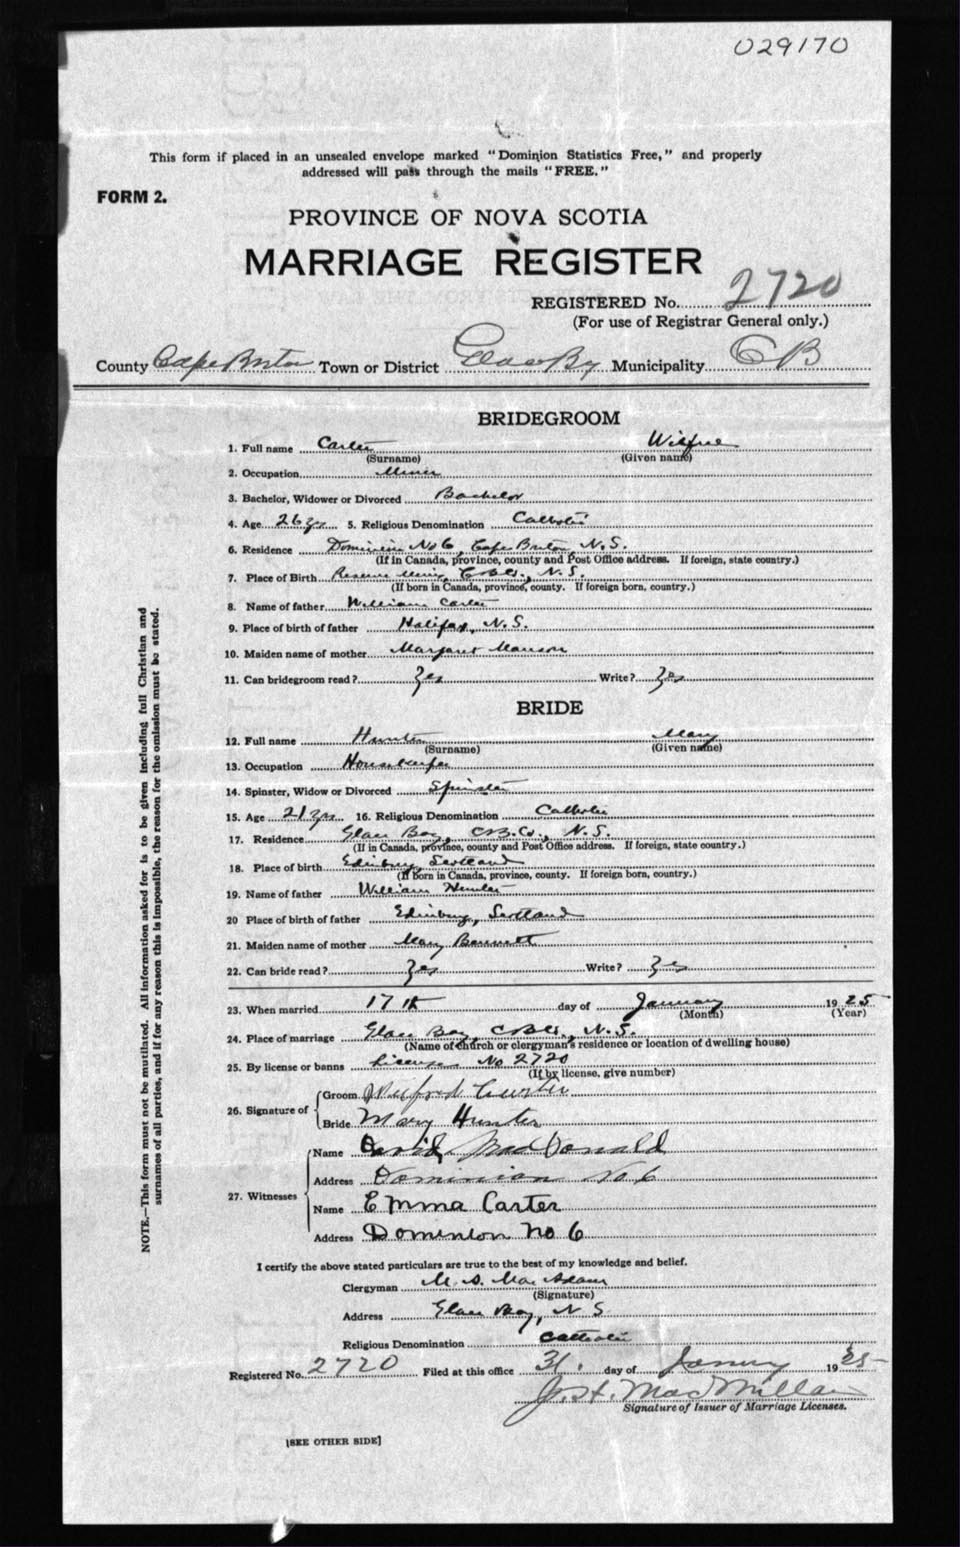 029170
This form if placed in an unsealed envelope marked "Dominion Statistics Free," and properly
addressed will pass through the mails "FREE."
FORM 2.
PROVINCE OF NOVA SCOTIA
MARRIAGE REGISTER
REGISTERED No. 2720
(For use of Registrar General only.)
County Cape Breton Town or District Glace Bay Municipality CB
BRIDEGROOM
1. Full name Carter Wilfred
(Surname) (Given name)
2. Occupation Miner
3. Bachelor, Widower or Divorced Bachelor
4. Age 26 yrs 5. Religious Denomination Catholic
6. Residence Dominion No 6, Cape Breton, N.S.
(If in Canada, province, county and Post Office address. If foreign, state country.)
7. Place of Birth Reserve Mines, C.B. Co., N.S.
(If born in Canada, province, county. If foreign born, country.)
8. Name of father William Carter
9. Place of birth of father Halifax, N.S.
10. Maiden name of mother Margaret Manson
11. Can bridegroom read? Yes Write? Yes
BRIDE
12. Full name Hunter Mary
(Surname) (Given name)
13. Occupation Housekeeper
14. Spinster, Widow or Divorced Spinster
15. Age 21 yrs 16. Religious Denomination Catholic
17. Residence Glace Bay, C.B. Co., N.S.
(If in Canada, province, county and Post Office address. If foreign, state country.)
18. Place of birth Edinburg, Scotland
(If born in Canada, province, county. If foreign born, country.)
19. Name of father William Hunter
20 Place of birth of father Edinburg, Scotland
21. Maiden name of mother Mary
22. Can bride read? Yes Write? Yes
23. When married 17th day of January 1925
(Month) (Year)
24. Place of marriage Glace Bay, C.B. Co., N.S.
(Name of church or clergyman's residence or location of dwelling house)
25. By license or banns License No 2720
(If by license, give number)
26. Signature of Groom Wilfred Carter
Bride Mary Hunter
27. Witnesses Name David MacDonald
Address Dominion No 6
Name Emma Carter
Address Dominion No 6
I certify the above stated particulars are true to the best of my knowledge and belief.
Clergyman M. A. MacAdam
(Signature)
Address Glace Bay, N S
Religious Denomination Catholic
Registered No. 2720 Filed at this office 31. day of January 1925
J. H. MacMillan
Signature of Issuer of Marriage Licenses.
[SEE OTHER SIDE]
NOTE.—This form must not be mutilated. All information asked for is to be given including full Christian and
surnames of all parties, and if for any reason this is impossible, the reason for the omission must be stated.